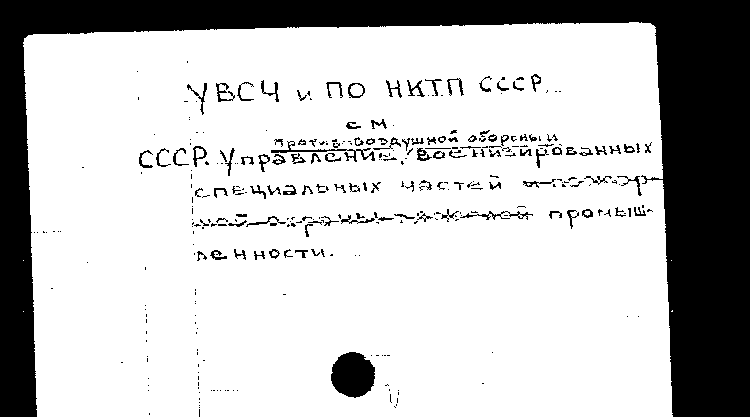 УВСЧ и ПО НКТП СССР.
см.
противовоздушной обороны и
СССР. Управление, военизированных
специальных частей и пожар-
ной охраны тяжелой промыш-
ленности.